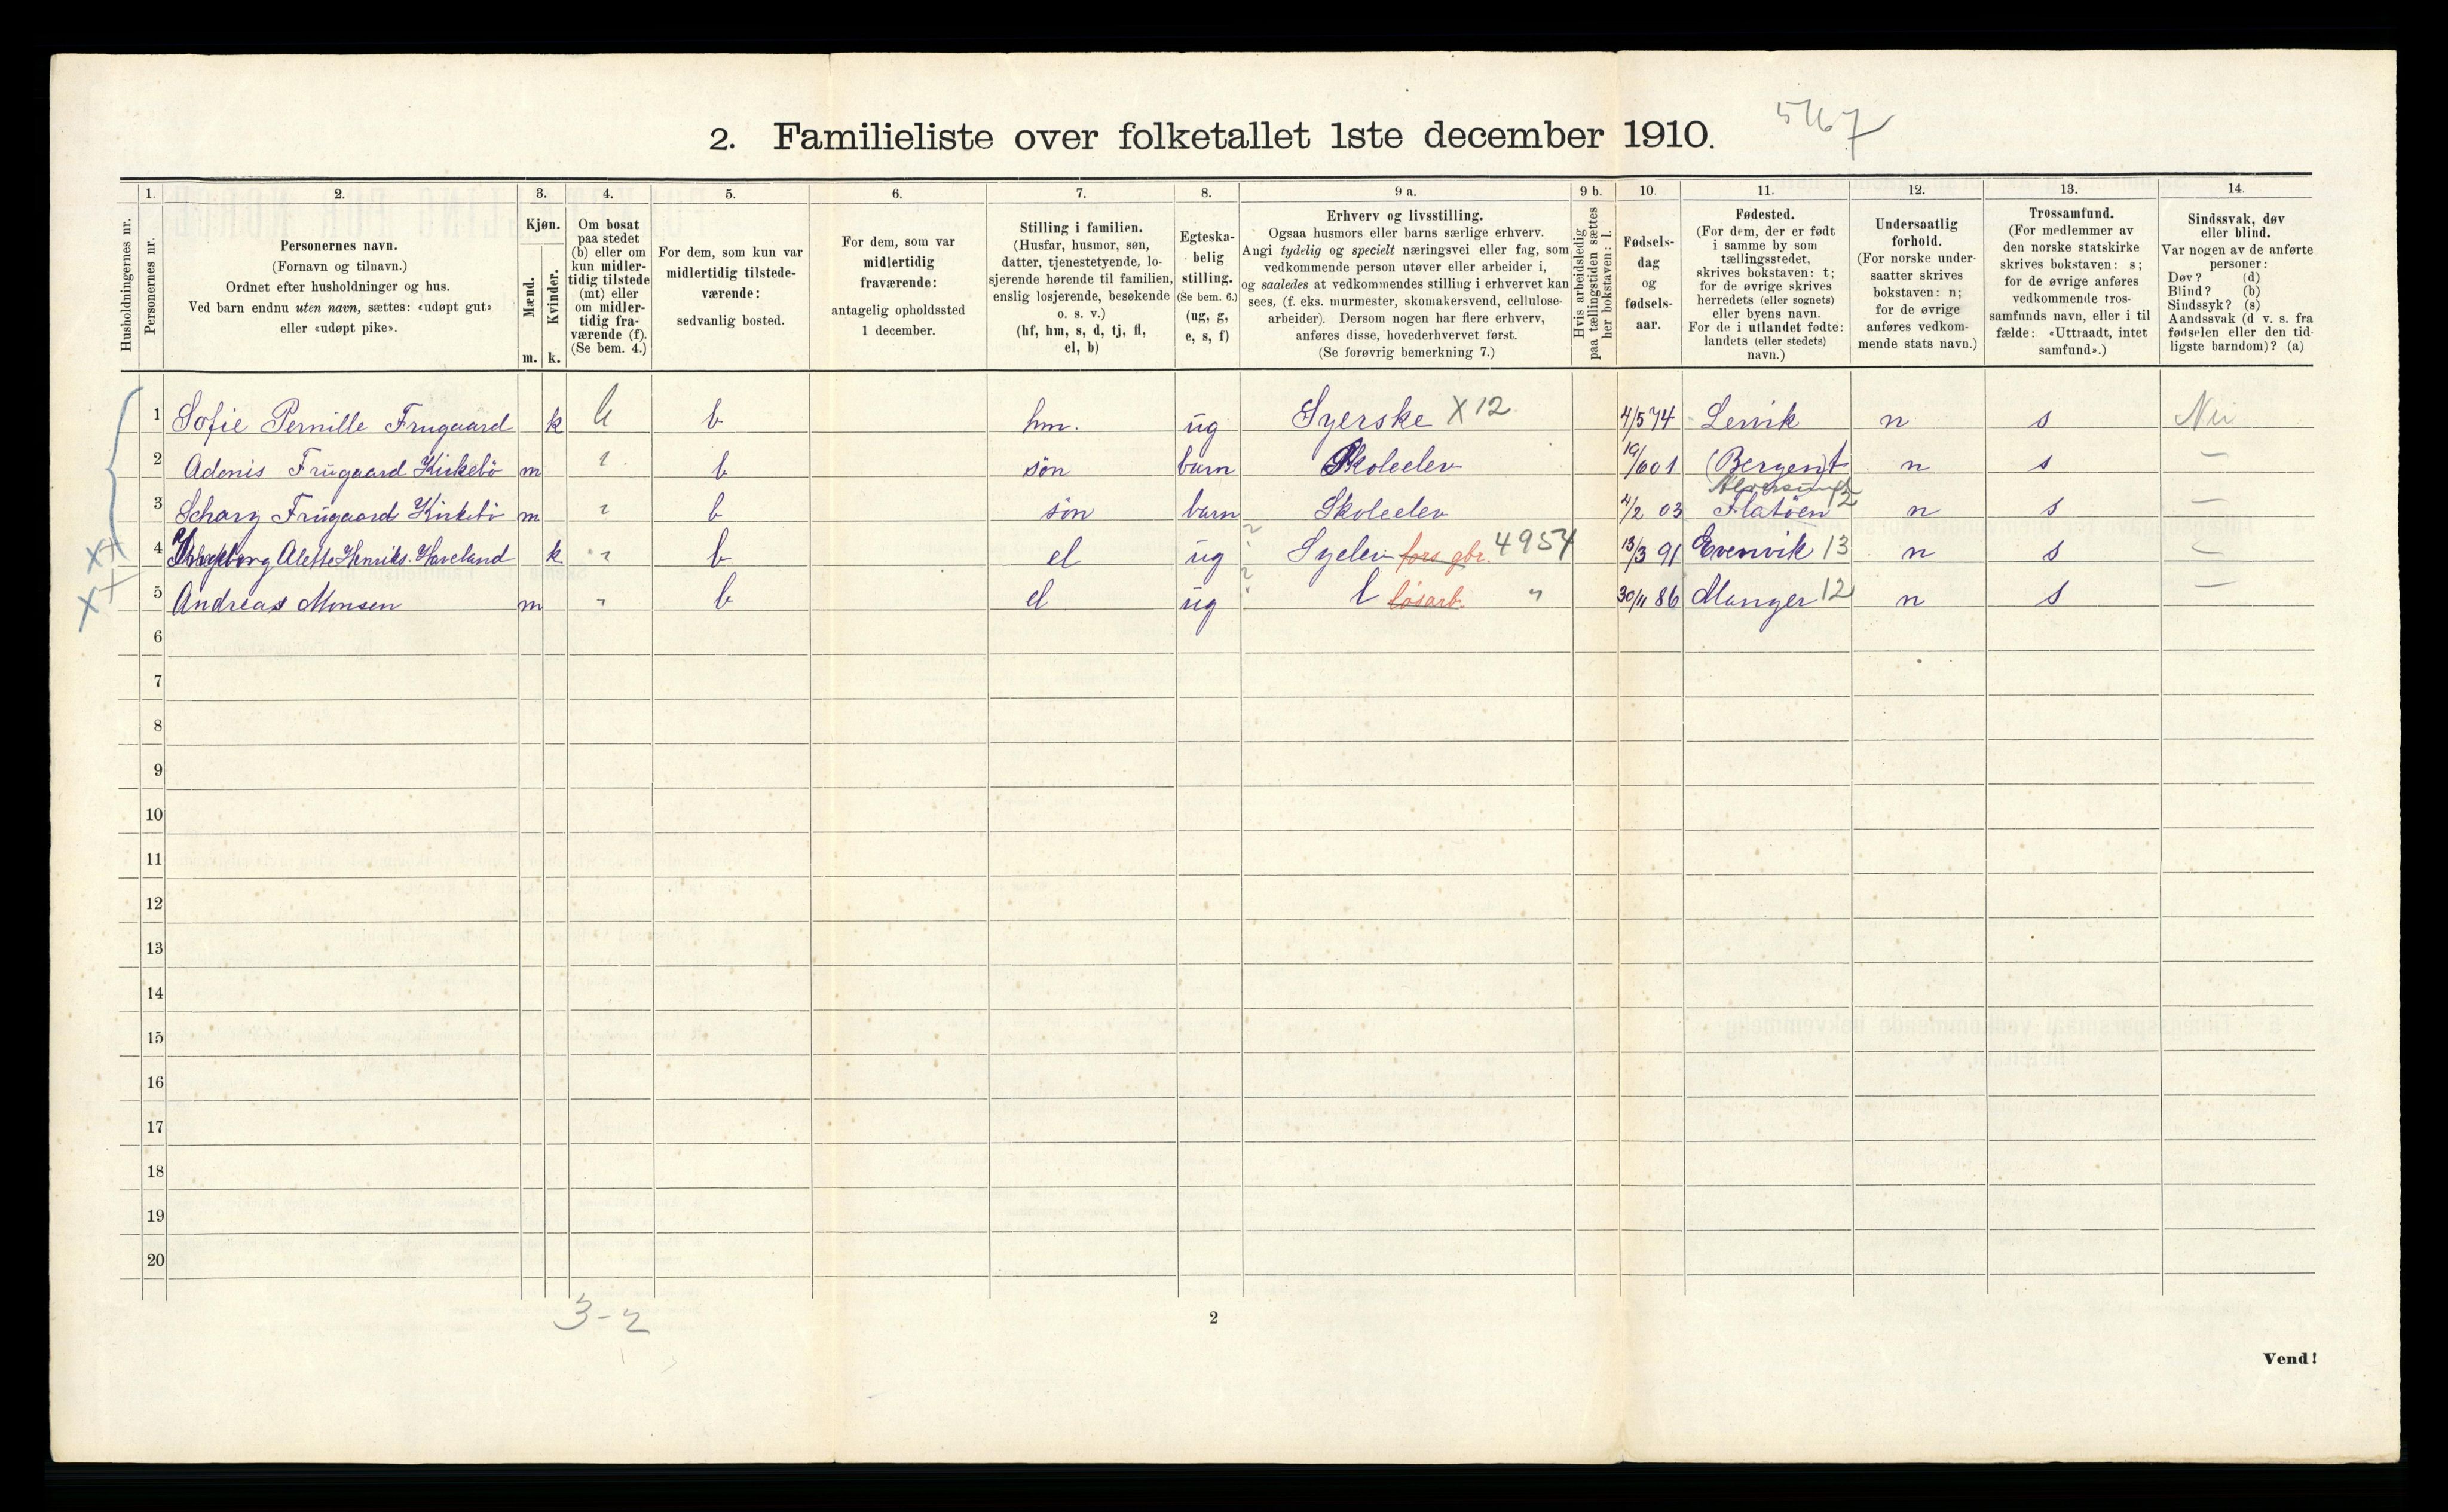 5467
2. Familieliste over folketallet 1ste december 1910.
1. 2. 3. 4. 5. 6. 7. 8. 9 a. 9 b. 10. 11. 12. 13. 14.
Husholdningernes nr.
Personernes nr.
Personernes navn.
(Fornavn og tilnavn.)
Ordnet efter husholdninger og hus.
Ved barn endnu uten navn, sættes: «udøpt gut»
eller «udøpt pike».
Kjøn.
Mænd.
Kvinder.
m. k.
Om bosat
paa stedet
(b) eller om
kun midler-
tidig tilstede
(mt) eller
om midler-
tidig fra-
værende (f).
(Se bem. 4.)
For dem, som kun var
midlertidig tilstede-
værende:
sedvanlig bosted.
For dem, som var
midlertidig
fraværende:
antagelig opholdssted
1 december.
Stilling i familien.
(Husfar, husmor, søn,
datter, tjenestetyende, lo-
sjerende hørende til familien,
enslig losjerende, besøkende
o. s. v.)
(hf, hm, s, d, tj, fl,
el, b)
Egteska-
belig
stilling.
(Se bem. 6.)
(ug, g,
e, s, f)
Erhverv og livsstilling.
Ogsaa husmors eller barns særlige erhverv.
Angi tydelig og specielt næringsvei eller fag, som
vedkommende person utøver eller arbeider i,
og saaledes at vedkommendes stilling i erhvervet kan
sees, (f. eks. murmester, skomakersvend, cellulose-
arbeider). Dersom nogen har flere erhverv,
anføres disse, hovederhvervet først.
(Se forøvrig bemerkning 7.)
Hvis arbeidsledig
paa tællingstiden sættes
her bokstaven: l.
Fødsels-
dag
og
fødsels-
aar.
Fødested.
(For dem, der er født
i samme by som
tællingsstedet,
skrives bokstaven: t;
for de øvrige skrives
herredets (eller sognets)
eller byens navn.
For de i utlandet fødte:
landets (eller stedets)
navn.)
Undersaatlig
forhold.
(For norske under-
saatter skrives
bokstaven: n;
for de øvrige
anføres vedkom-
mende stats navn.)
Trossamfund.
(For medlemmer av
den norske statskirke
skrives bokstaven: s;
for de øvrige anføres
vedkommende tros-
samfunds navn, eller i til
fælde: «Uttraadt, intet
samfund».)
Sindssvak, døv
eller blind.
Var nogen av de anførte
personer:
Døv? (d)
Blind? (b)
Sindssyk? (s)
Aandssvak (d v. s. fra
fødselen eller den tid-
ligste barndom)? (a)
1 Sofie Pernille Frugaard k b hm. ug Syerske X12 4/5 74 Lervik n s Nei
2 Adonis Frugaard Kirkebö m " b sön barn Skoleelev 19/6 01 (Bergen) t n s —
Alversund 12
3 Scharz Frugaard Kirkebö m " b sön barn Skoleelev 4/2 03 Flatöen n s —
XX 4 Ingeborg Alette Henriks. Haveland k " b el ug Syelev fors gbr. 4954 13/3 91 Evenvik 13 n s —
XX 5 Andreas Monsen m " b el ug l løsarb. " 30/11 86 Manger 12 n s —
6
7
8
9
10
11
12
13
14
15
16
17
18
19
20
3-2
2
Vend!